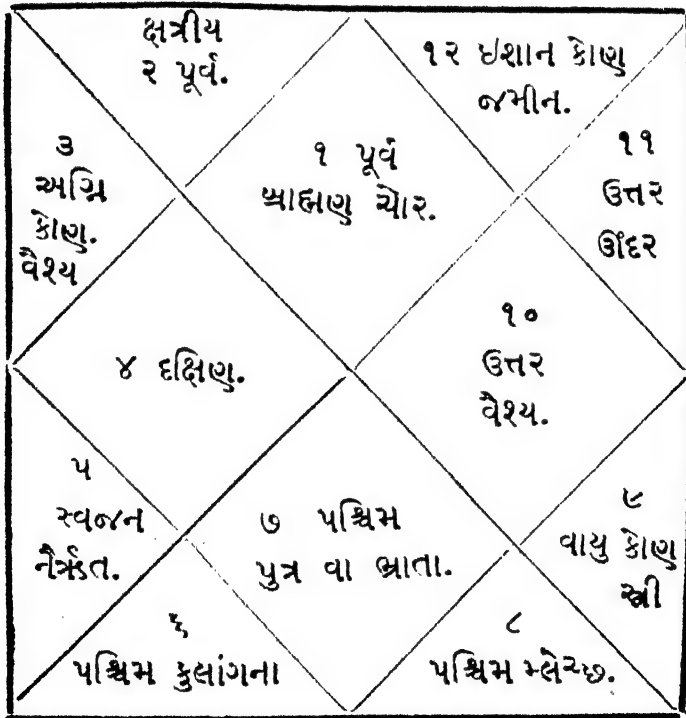 ક્ષત્રીય
૨ પૂર્વ.
૧૨ ઇશાન કોણ
જમીન.
૩
અગ્નિ
કોણ.
વૈશ્ય
૧ પૂર્વ
બ્રાહ્મણ ચોર.
૧૧
ઉત્તર
ઊંદર
૪ દક્ષિણ.
૧૦
ઉત્તર
વૈશ્ય.
૫
સ્વજન
નૈર્ઋત.
૭ પશ્ચિમ
પુત્ર વા ભ્રાતા.
૯
વાયુ કોણ
સ્ત્રી
૬
પશ્ચિમ કુલાંગના
૮
પશ્ચિમ મ્લેચ્છ.